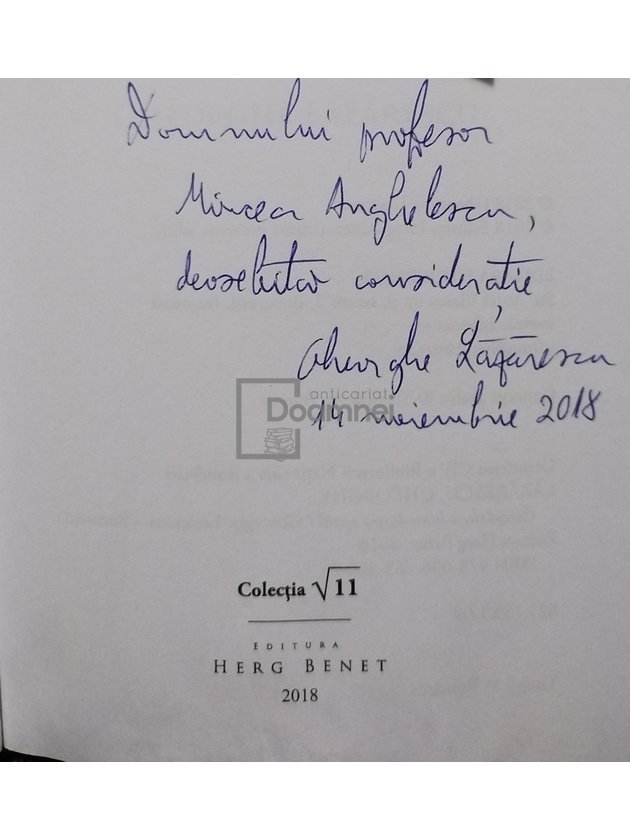 Domnului profesor
Mircea Anghelescu,
deosebită considerație,
Gheorghe Lăzărescu
anticariat
Doamnei
14 noiembrie 2018
Colecția √11
EDITURA
HERG BENET
2018